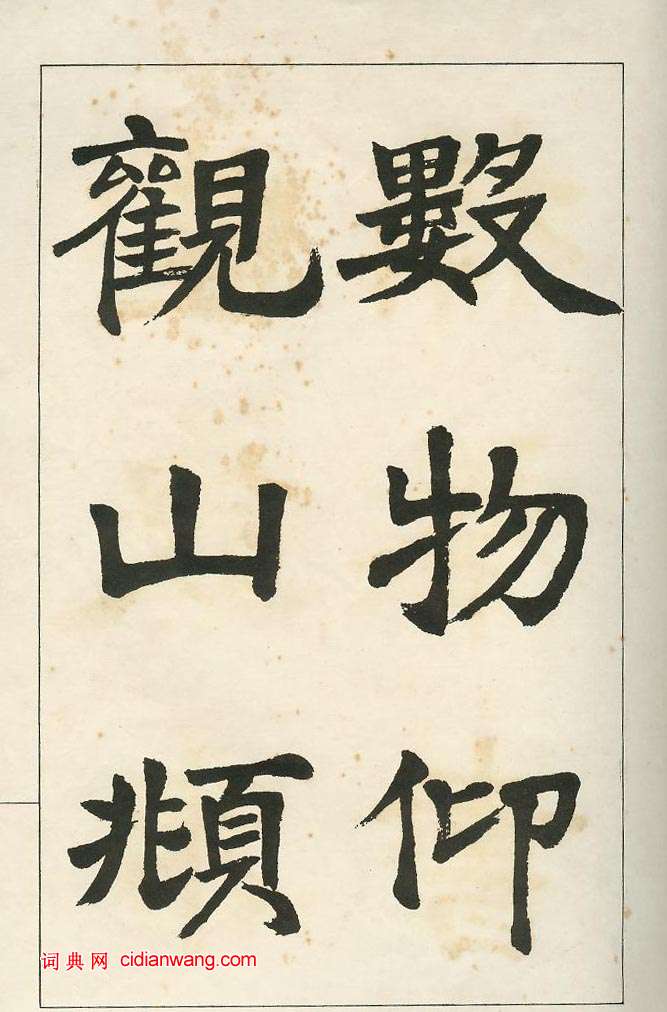 數物仰
觀山頫
词典网 cidianwang.com